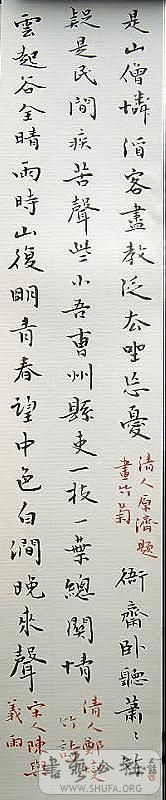 是山僧憐酒客盡教泛去坐忘憂
清人原濟題
畫竹菊
衙齋卧聽蕭〻
疑是民間疾苦聲些小吾曹州縣吏一枝一葉總關情
清人鄭燮
竹詩
雲起谷全晴雨時山復明青春望中色白澗晚來聲
宋人陳與
義雨
WWW.SHUFA.ORG